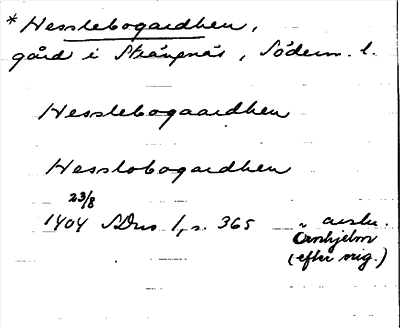 *Hesslebogardhen,
gård i Skångnäs, Söderm. l.
Hesslebogaardhen
Hesslobogardhen
23/8
1404 SDns 1, s. 365 i avskr.
Örnhjelm
(efter orig.)